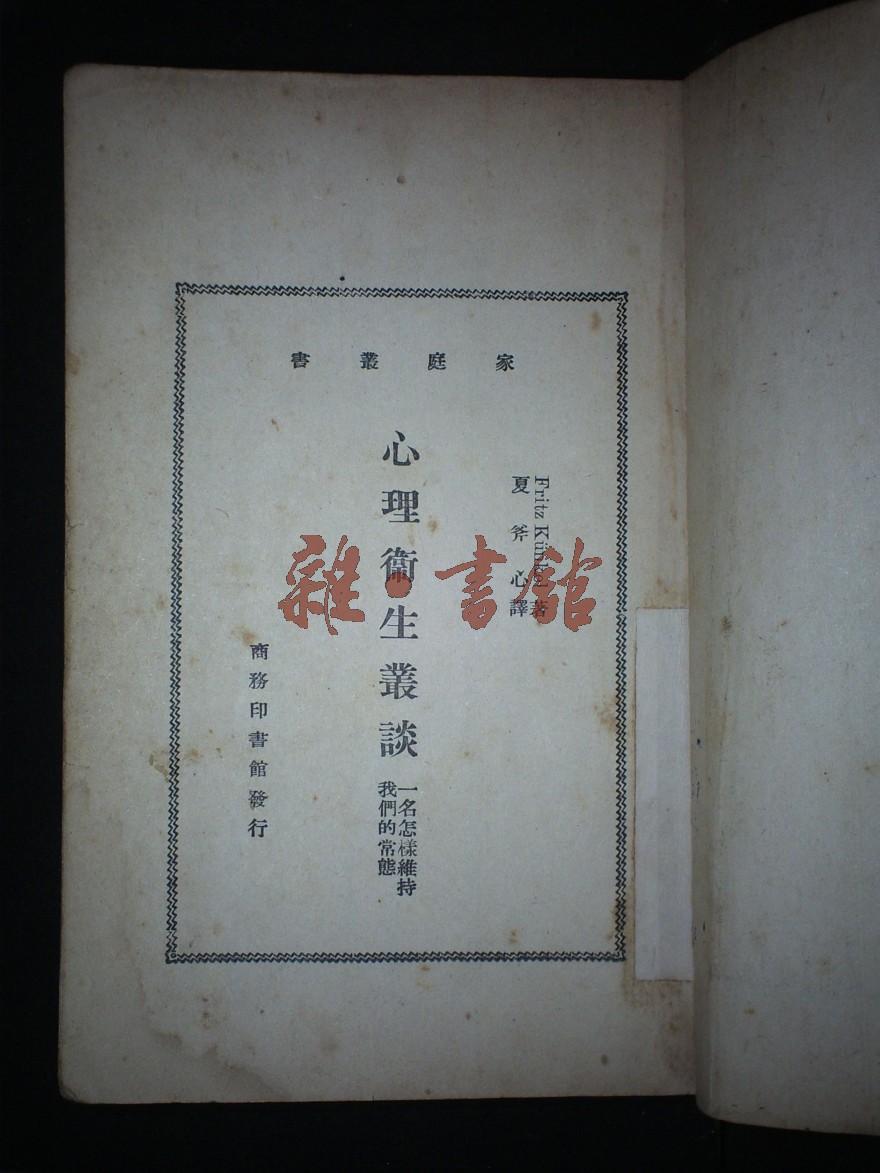 家庭叢書
Fritz Künkel 著
夏斧心譯
心理衞生叢談
一名怎樣維持
我們的常態
商務印書館發行
雜·書館